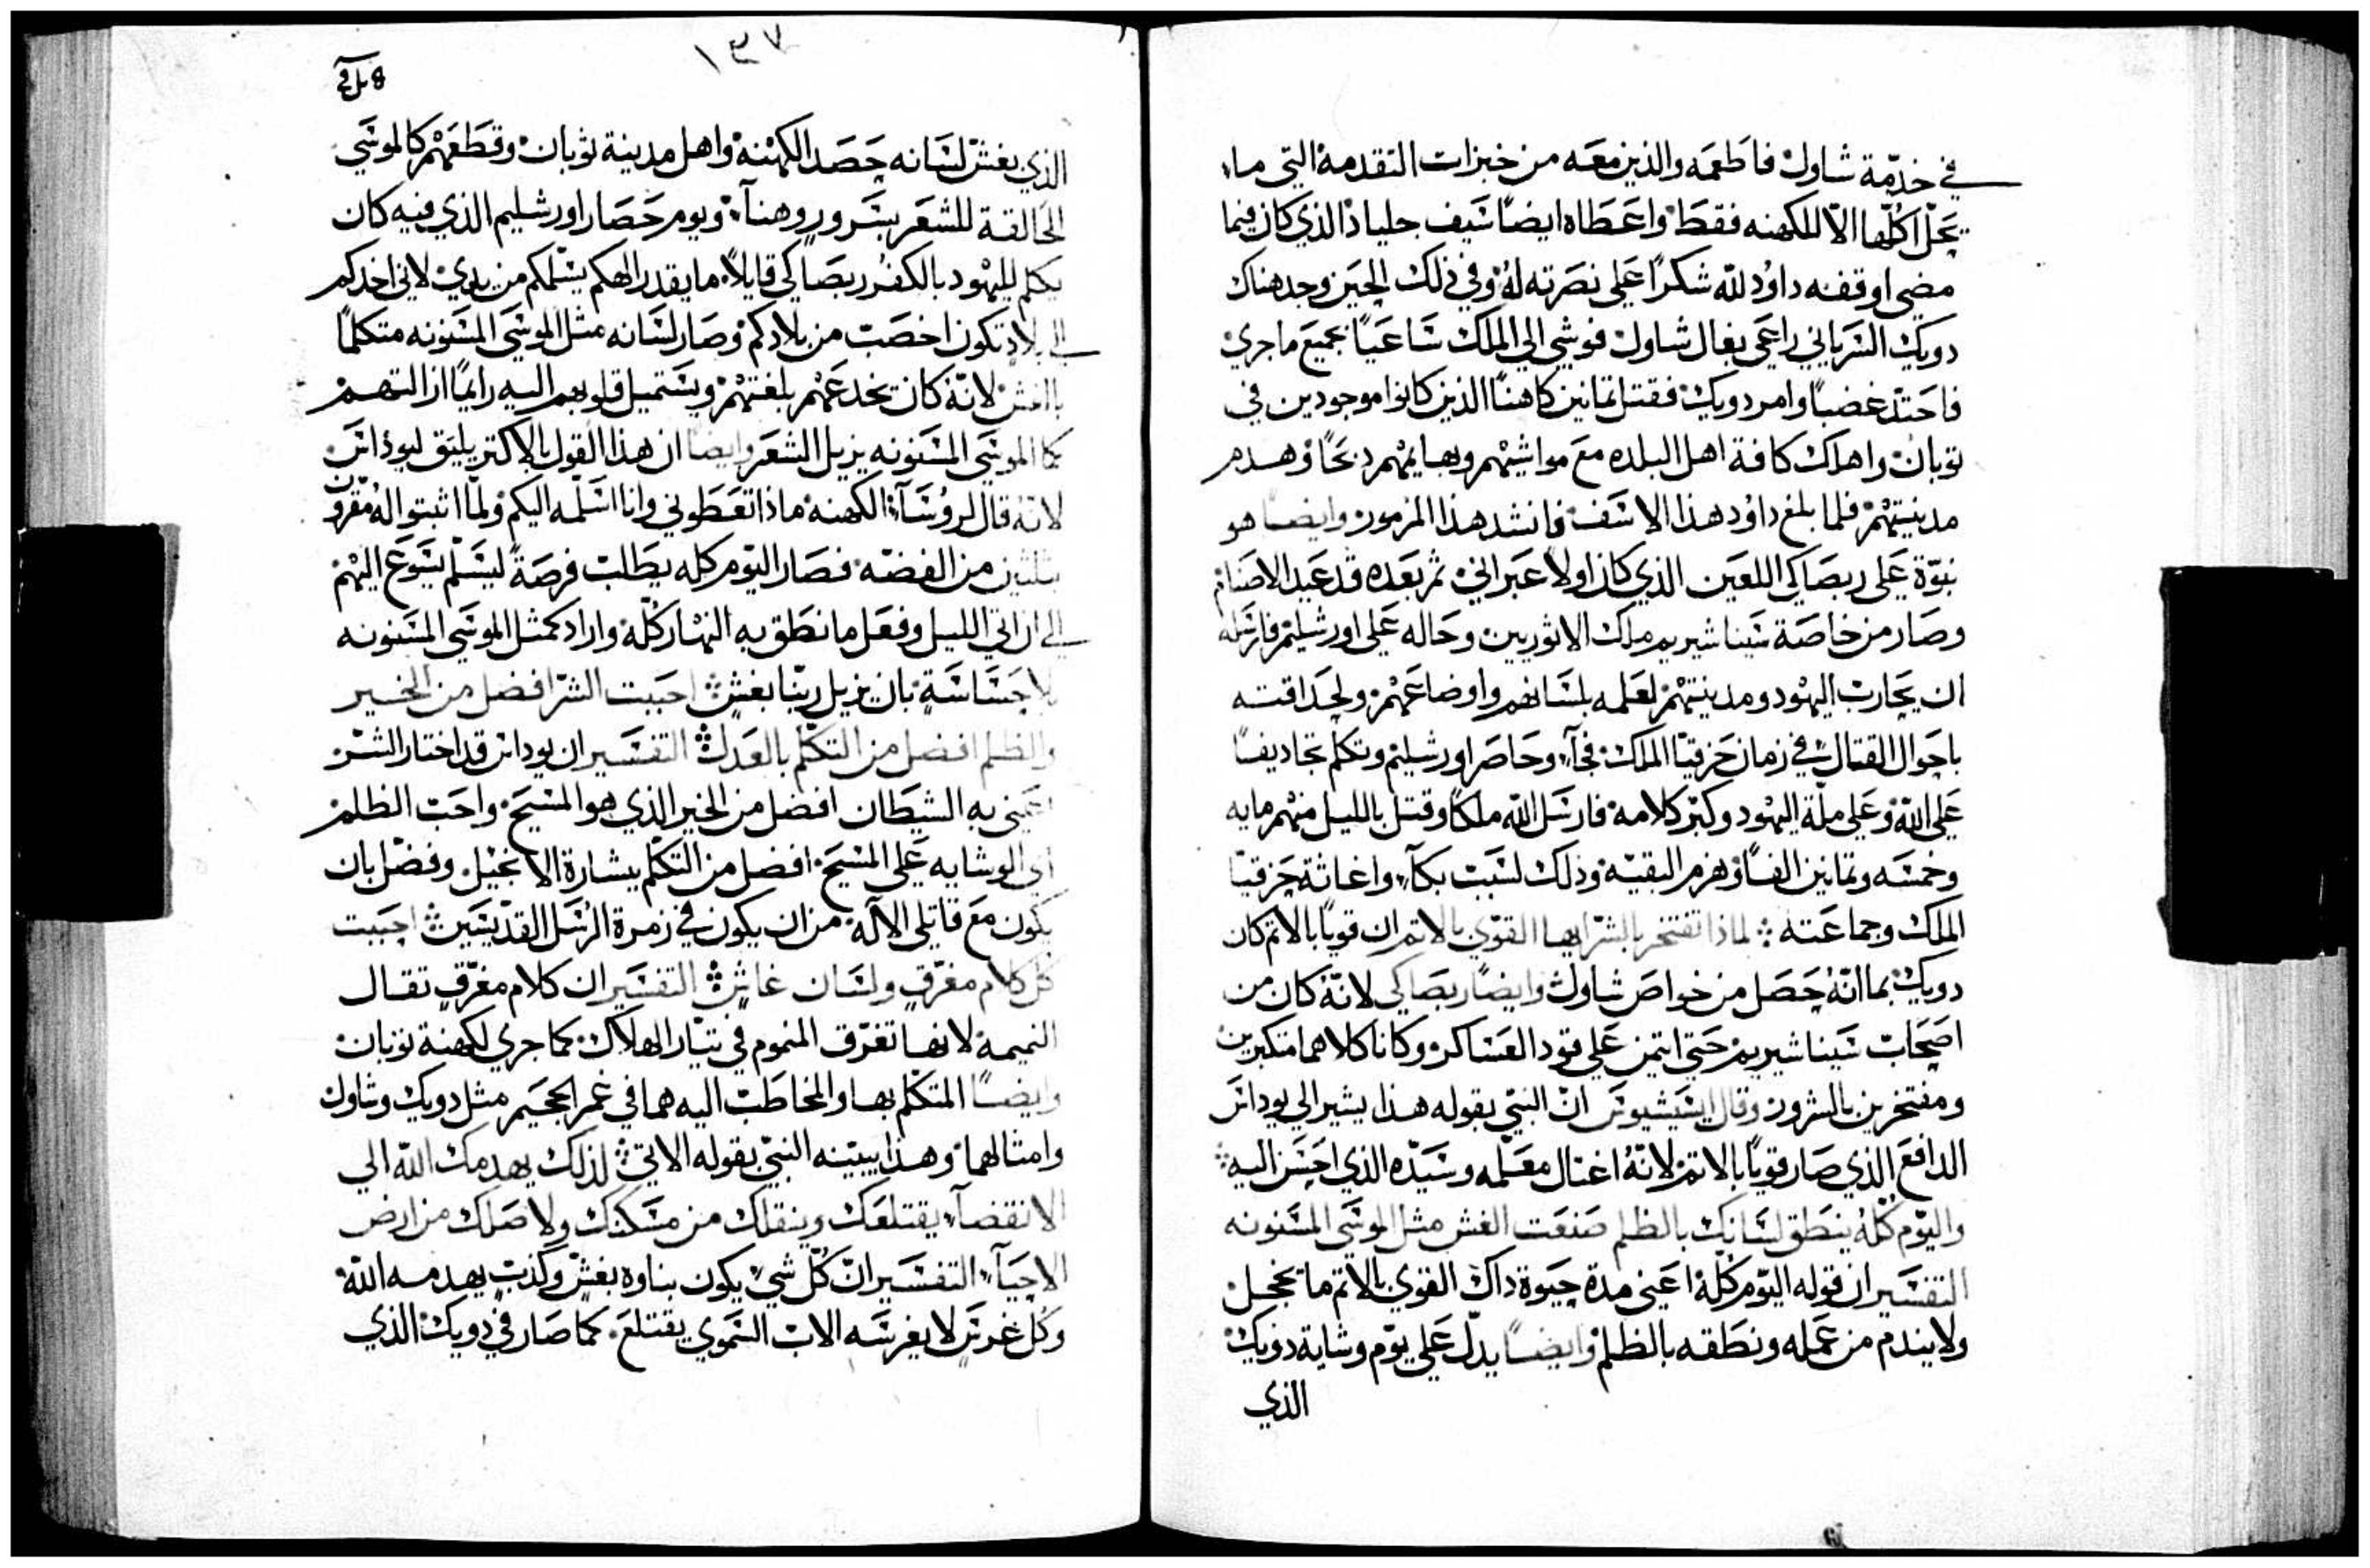 في خدمة شاول فاطعمه والذين معه من خبزات التقدمة التي ما
يحل اكلها الا للكهنه فقط واعطاه ايضا سيف جلياد الذي كان فيما
مضي اوقفه داود لله شكرا علي نصرته له وفي ذلك الحين وجد هناك
دويك السرياني راعي بغال شاول فوشي الي الملك ساعيا بجميع ما جري
فاحتد غضبا وامر دويك فقتل ثمانين كاهنا الذين كانوا موجودين في
نوبان واهلك كافة اهل البلده مع مواشيهم وبهايمهم ذبحا وهدم
مدينتهم فلما بلغ داود هذا الاسف فانشد هذا المزمور وايضا هو
نبوة علي ربصاكي اللعين الذي كان اولا عبراني ثم بعده قد عبد الاصنام
وصار من خاصة سيناشيريم ملك الاثوريين وحاله علي اورشليم فارسله
ان يحارب اليهود ومدينتهم لعلمه بلسانهم واوضاعهم ولحداقته
باحوال القتال في زمان حزقيا الملك فجآء وحاصر اورشليم وتكلم تجاديفا
علي الله وعلي ملة اليهود وكبر كلامه فارسل الله ملكا وقتل بالليل منهم مايه
وخمسه وثمانين الفا وهزم البقيه وذلك لسبب بكآء واغاثة حزقيا
الملك وجماعته لماذا تفتخر بالشر ايها القوي بالاثم ان قويا بالاثم كان
دويك بما انه حصل من خواص شاول وايضا ربصاكي لانه كان من
اصحاب سيناشيريم حتي ايتمن علي قود العساكر وكانا كلاهما متكبرين
ومفتخرين بالشرور وقال ايسيشيوس ان النبي بقوله هذا يشير الي يوداس
الدافع الذي صار قويا بالاثم لانه اغتال معلمه وسيده الذي احسن اليه
واليوم كله ينطق لسانك بالظلم صنعت الغش مثل الموسي المسنونه
التفسير ان قوله اليوم كله اعني مدة حيوة داك القوي بالاثم ما تخجل
ولا يندم من عمله ونطقه بالظلم وايضا يدل علي يوم وشاية دويك
الذي
١٣٧
الذي بغش لسانه حصد الكهنه واهل مدينة نوبان وقطعهم كالموسي
الحالقة للشعر بسرور وهنآء ويوم حصار اورشليم الذي فيه كان
يكلم لليهود بالكفر ربصاكي قايلا ما يقدر الهكم يسلمكم من يدي لاني اخدكم
الي بلاد تكون اخصب من بلادكم وصار لسانه مثل الموسي المسنونه متكلما
بالغش لانه كان يخدعهم بلغتهم ويستميل قلوبهم اليه رايما ازالتهم
كما الموسي المسنونه يزيل الشعر وايضا ان هذا القول بالاكتر يليق ليوداس
لانه قال لروسآء الكهنه ماذا تعطوني وانا اسلمه اليكم ولما اثبتوا له مقرون
بثلثين من الفضه فصار اليوم كله يطلب فرصة ليسلم يسوع اليهم
الي ان اتي الليل وفعل ما نطق به النهار كله واراد كمثل الموسي المسنونه
بلا حساسة بان يزيل ربنا بغش احببت الشر افضل من الخير
والظلم افضل من التكلم بالعدل التفسير ان يوداس قد اختار الشر
اعني به الشيطان افضل من الخير الذي هو المسيح واحب الظلم
اي الوشايه علي المسيح افضل من التكلم ببشارة الانجيل وفضل بان
يكون مع قاتلي الاله من ان يكون في زمرة الرسل القديسين احببت
كل كلام مغرق ولسان غاش التفسير ان كلام مغرق تقال
النميمة لانها تغرق المنموم في تيار الهلاك كما جري لكهنة نوبان
وايضا المتكلم بها والمخاطب اليه هما في غمر الجحيم مثل دويك وشاول
وامثالهما وهذا يبينه النبي بقوله الاتي لذلك يهدمك الله الي
الانقضآء يقتلعك وينقلك من مسكنك ولاصلك من ارض
الاحيآء التفسير ان كل شي يكون بناوه بغش وكذب يهدمه الله
وكل غرس لا يغرسه الاب السموي يقتلع كما صار في دويك الذي